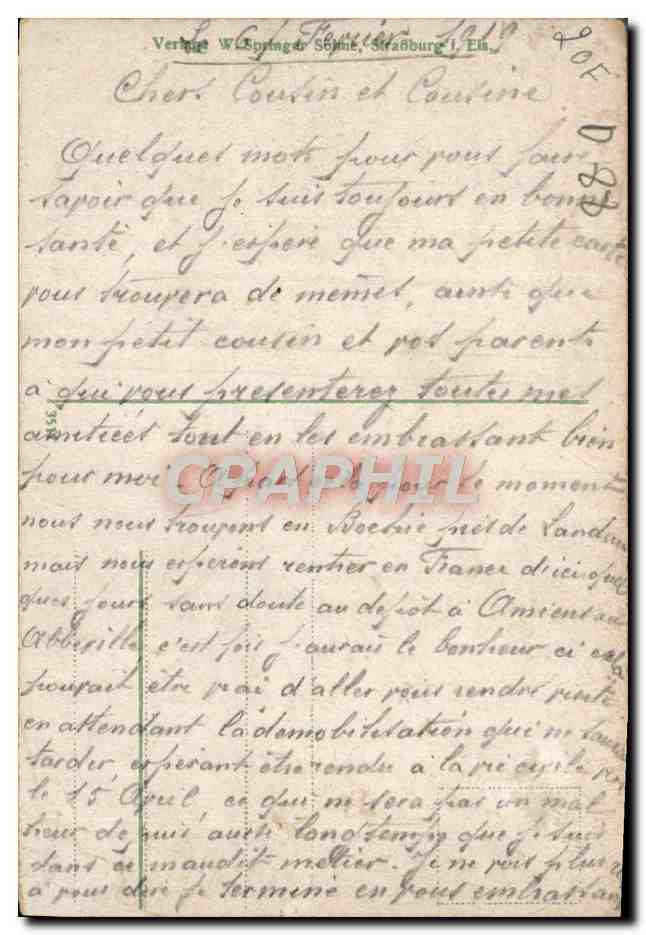 Le 6 Fevrier 1919
Verlag W. Springer Söhne, Straßburg i. Els.
20E
Chers Cousin et Cousine
Quelques mots pour vous faire
savoir que je suis toujours en bonne
santé, et j'espere que ma petite carte
vous trouvera de memes, ainsi que
mon petit cousin et vos parents
à qui vous presenterez toutes mes
amitiées tout en les embrassant bien
pour moi. Apart cela pour le moment
nous nous trouvons en Bochie près de Landau
mais nous esperons rentrer en France d'ici quel
ques jours sans doute au depôt à Amiens ou
Abbeville, c'est fois j'aurais le bonheur ci cela
pourait être vrai d'aller vous rendre visite
en attendant la demobilisation qui ne saurai
tarder esperant être rendu à la vie civile vers
le 15 Avril ce qui ne sera pas un mal
heur depuis aussi landtemps que je suis
dans ce maudit metier. Je ne vois plus rien
à vous dire je termine en vous embrassant
CPAPHIL